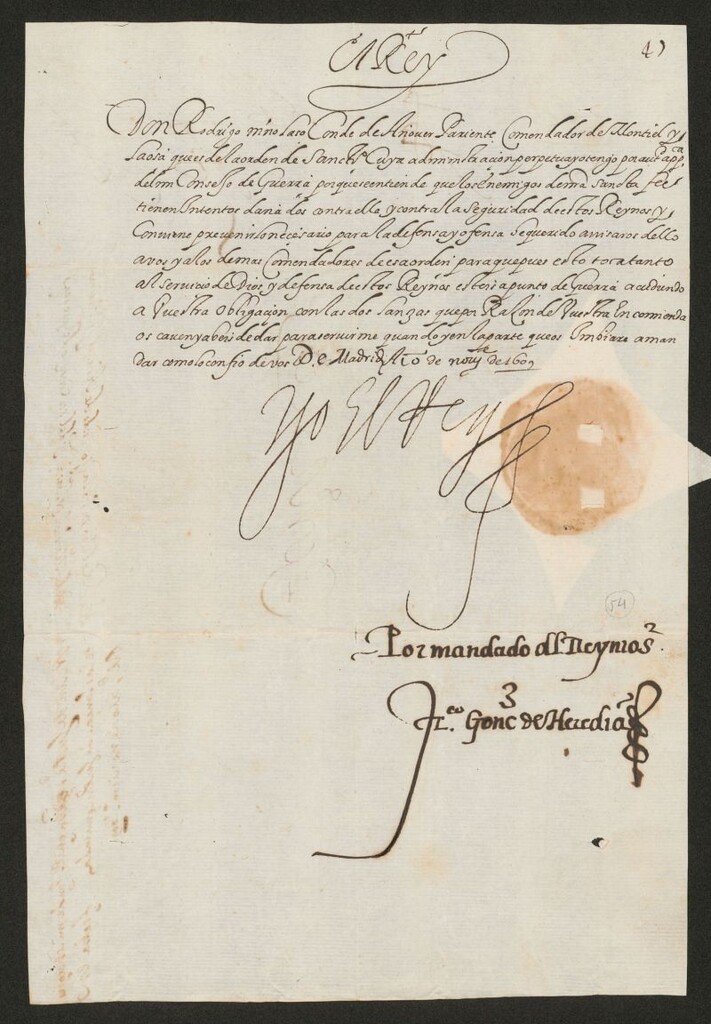 El Rey
41
Don Rodrigo niño Laso Conde de Añover Pariente Comendador de Montiel y
la osa que es de la orden de Sancti.º Cuya administraçion perpetua yo tengo por autt. app.ca
del mi Consejo de Guerra porque se entiende que los enemigos de nra Sancta fee
tienen Intentos dañados contra ella y contra la Seguridad de estos Reynos y
Conviene prevenir lo neçesario para la defensa y ofensa he querido avisaros dello
a vos y a los demas Comendadores de esa orden para que pues esto toca tanto
al serviçio de Dios y defensa de estos Reynos esteis a punto de Guerra acudiendo
a Vuestra obligaçion con las dos lanzas que por Razon de Vuestra Encomienda
os caven y aveis de dar para servirme quando y en la parte que os Imbiare a man
dar como lo confio de vos De Madrid A 10 de nov.re de 1609
Yo El Rey
54
Por mandado del Rey nro s.r
Fr.co Gonç de Heredia